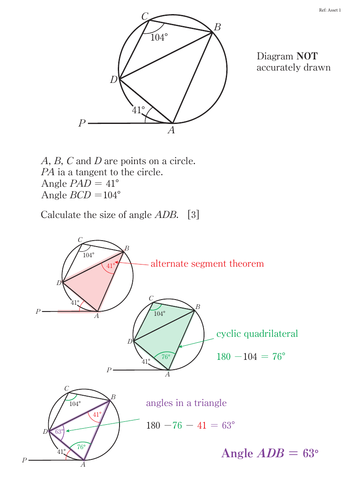 Ref: Asset 3
C
B
104°
Diagram NOT
accurately drawn
D
41°
P
A
A, B, C and D are points on a circle.
PA ia a tangent to the circle.
Angle PAD = 41°
Angle BCD =104°
Calculate the size of angle ADB. [3]
C
B
104°
41°
alternate segment theorem
D
41°
P
A
C
B
104°
cyclic quadrilateral
D
76°
180 −104 = 76°
41°
P
A
C
B
104°
angles in a triangle
41°
D
63°
180 −76 − 41 = 63°
76°
41°
Angle ADB = 63°
P
A